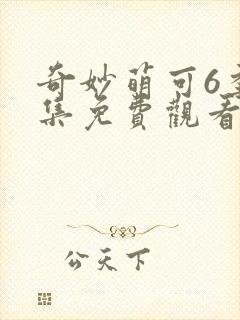 奇妙萌可6季
集免費觀看
公天下